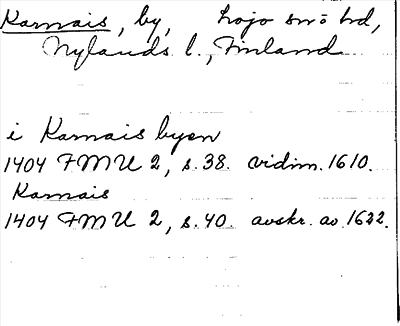 Karnais, by, Lojo sn̄o hd,
Nylands l., Finland
i Karnais byen
1404 FMU 2, s. 38. vidim. 1610.
Karnais
1404 FMU 2, s. 40. avskr. av 1622.